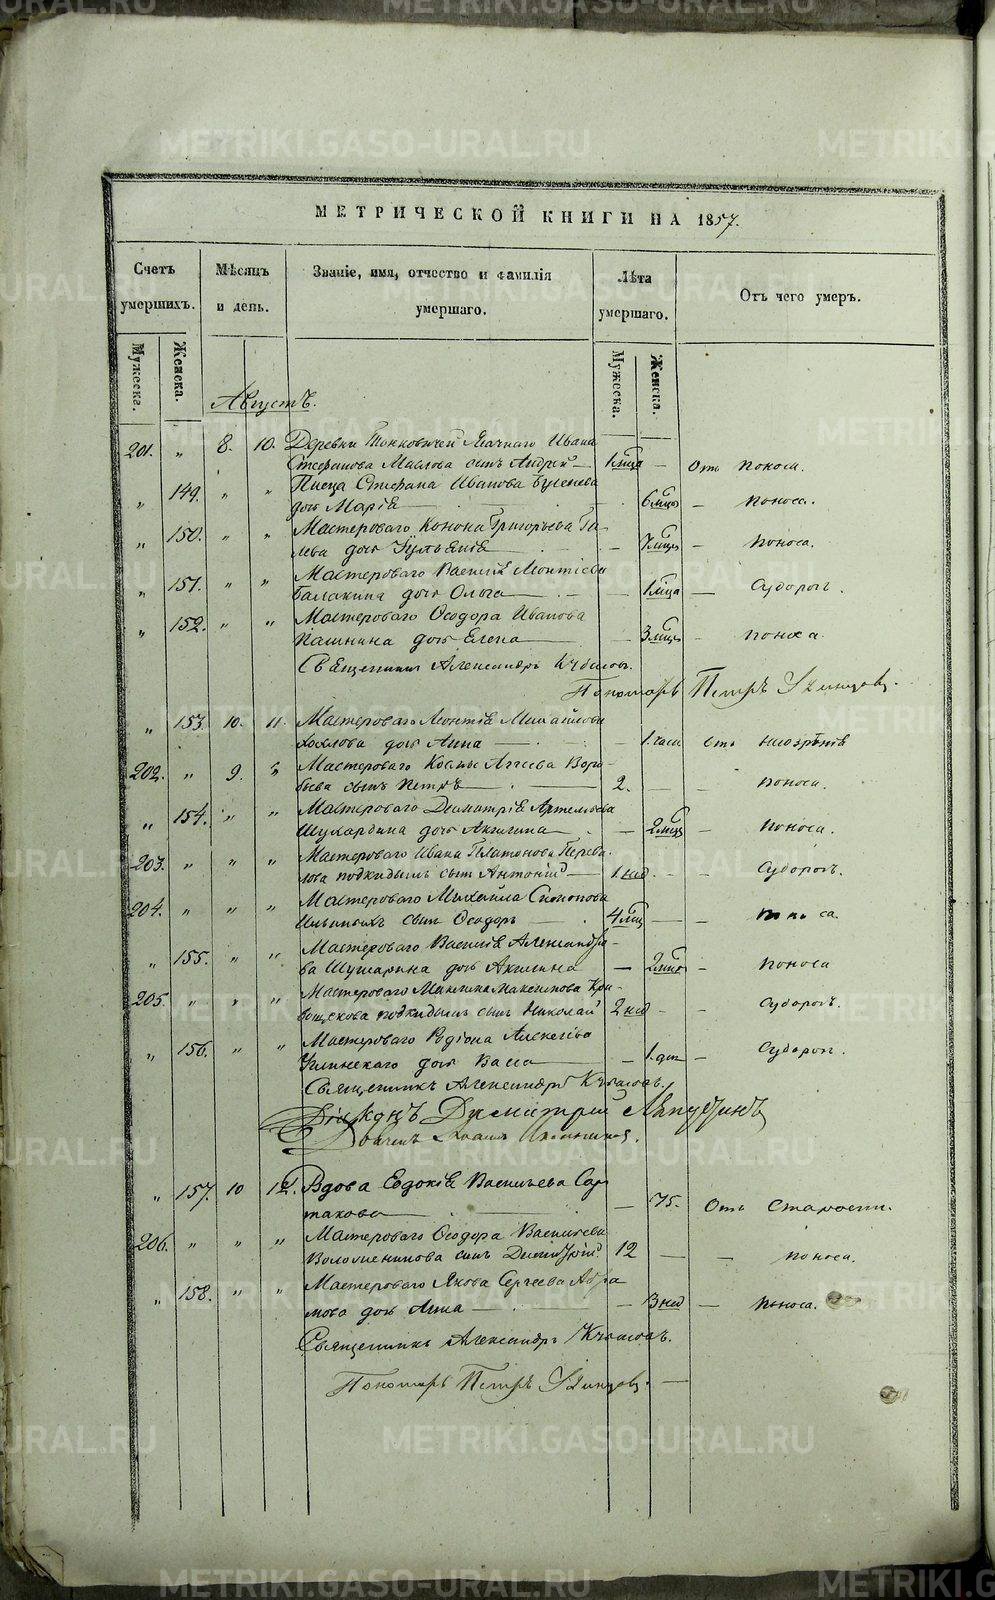 METRIKI.GASO-URAL.RU
МЕТРИЧЕСКОЙ КНИГИ НА 1857.
Счетъ умершихъ. Мѣсяцъ и день. Званіе, имя, отчество и фамилія умершаго. Лѣта умершаго. Отъ чего умеръ.
Мужеска. Женска. Мужеска. Женска.
Августъ.
201. „ 8. 10. Деревни Ивана
Стефанова Маслова сынъ Андрей 1 мца — отъ поноса.
„ 149. „ „ Писца Стефана Иванова
дочь Марія 6 мцъ — поноса.
„ 150. „ „ Мастероваго Конона Григорьева Га-
лева дочь Іульянія — 7 мцъ — поноса.
„ 151. „ „ Мастероваго Василія Леонтіева
Балакина дочь Ольга — 1 мца — судорогъ.
„ 152. „ „ Мастероваго Ѳеодора Иванова
Пашнина дочь Елена — 3 мцъ — поноса
Священникъ Александръ
Пономарь Петръ
„ 153. 10. 11. Мастероваго Леонтія Михайлова
Хохлова дочь Анна — 1. часа отъ
202. „ 9. „ Мастероваго Козмы Аггеева Воро-
бьева сынъ Петръ 2. — поноса.
„ 154. „ „ Мастероваго Димитрія Артемьева
Шухардина дочь Акилина — 2 мцъ — поноса.
203. „ „ „ Мастероваго Ивана Платонова Перева-
лова подкидышъ сынъ Антоній 1 нед. — судорогъ.
204. „ „ „ Мастероваго Михайла
сынъ Ѳеодоръ 4 мцъ — поноса
„ 155. „ „ Мастероваго Василія Александро-
ва дочь Акилина — 2 мцъ — поноса
205. „ „ „ Мастероваго Максимова Кри-
вощекова подкидышъ сынъ Николай 2 нед — судорогъ.
„ 156. „ „ Мастероваго Родіона Алексѣева
дочь Васса — 1. дня — судорогъ.
Священникъ Александръ
Діаконъ Димитрій Ляпустинъ
„ 157. 10 12. Вдова Евдокія Васильева Сар-
такова — 75. отъ старости.
206. „ „ „ Мастероваго Ѳеодора Васильева
сынъ Димитрій 12 — поноса.
„ 158. „ „ Мастероваго Якова Сергеева Абра-
мова дочь Анна — 3 нед — поноса.
Священникъ Александръ
Пономарь Петръ